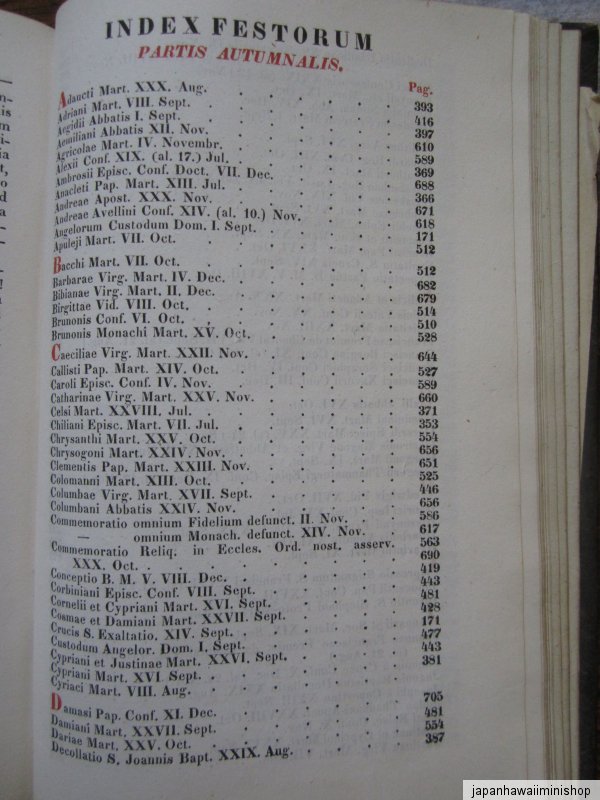 INDEX FESTORUM
PARTIS AUTUMNALIS.
Pag.
Adaucti Mart. XXX. Aug. . . . . . 393
Adriani Mart. VIII. Sept. . . . . . 416
Aegidii Abbatis I. Sept. . . . . . 397
Aemiliani Abbatis XII. Nov. . . . . . 610
Agricolae Mart. IV. Novembr. . . . . . 589
Alexii Conf. XIX. (al. 17.) Jul. . . . . . 369
Ambrosii Episc. Conf. Doct. VII. Dec. . . . . 688
Anacleti Pap. Mart. XIII. Jul. . . . . . 366
Andreae Apost. XXX. Nov. . . . . . 671
Andreae Avellini Conf. XIV. (al. 10.) Nov. . . . 618
Angelorum Custodum Dom. I. Sept. . . . . 171
Apuleji Mart. VII. Oct. . . . . . 512
Bacchi Mart. VII. Oct. . . . . . 512
Barbarae Virg. Mart. IV. Dec. . . . . 682
Bibianae Virg. Mart. II. Dec. . . . . 679
Birgittae Vid. VIII. Oct. . . . . . 514
Brunonis Conf. VI. Oct. . . . . . 510
Brunonis Monachi Mart. XV. Oct. . . . . 528
Caeciliae Virg. Mart. XXII. Nov. . . . . 644
Callisti Pap. Mart. XIV. Oct. . . . . 527
Caroli Episc. Conf. IV. Nov. . . . . . 589
Catharinae Virg. Mart. XXV. Nov. . . . . 660
Celsi Mart. XXVIII. Jul. . . . . . 371
Chiliani Episc. Mart. VII. Jul. . . . . 353
Chrysanthi Mart. XXV. Oct. . . . . . 554
Chrysogoni Mart. XXIV. Nov. . . . . 656
Clementis Pap. Mart. XXIII. Nov. . . . . 651
Colomanni Mart. XIII. Oct. . . . . . 525
Columbae Virg. Mart. XVII. Sept. . . . . 446
Columbani Abbatis XXIV. Nov. . . . . 656
Commemoratio omnium Fidelium defunct. II. Nov. . . 586
— omnium Monach. defunct. XIV. Nov. . 617
Commemoratio Reliq. in Eccles. Ord. nost. asserv.
XXX. Oct. . . . . . 563
Conceptio B. M. V. VIII. Dec. . . . . 690
Corbiniani Episc. Conf. VIII. Sept. . . . . 419
Cornelii et Cypriani Mart. XVI. Sept. . . . . 443
Cosmae et Damiani Mart. XXVII. Sept. . . . 481
Crucis S. Exaltatio, XIV. Sept. . . . . 428
Custodum Angelor. Dom. I. Sept. . . . . 171
Cypriani et Justinae Mart. XXVI. Sept. . . . 477
Cypriani Mart. XVI. Sept. . . . . . 443
Cyriaci Mart. VIII. Aug. . . . . . 381
Damasi Pap. Conf. XI. Dec. . . . . . 705
Damiani Mart. XXVII. Sept. . . . . . 481
Dariae Mart. XXV. Oct. . . . . . 554
Decollatio S. Joannis Bapt. XXIX. Aug. . . . . 387
japanhawaiiminishop